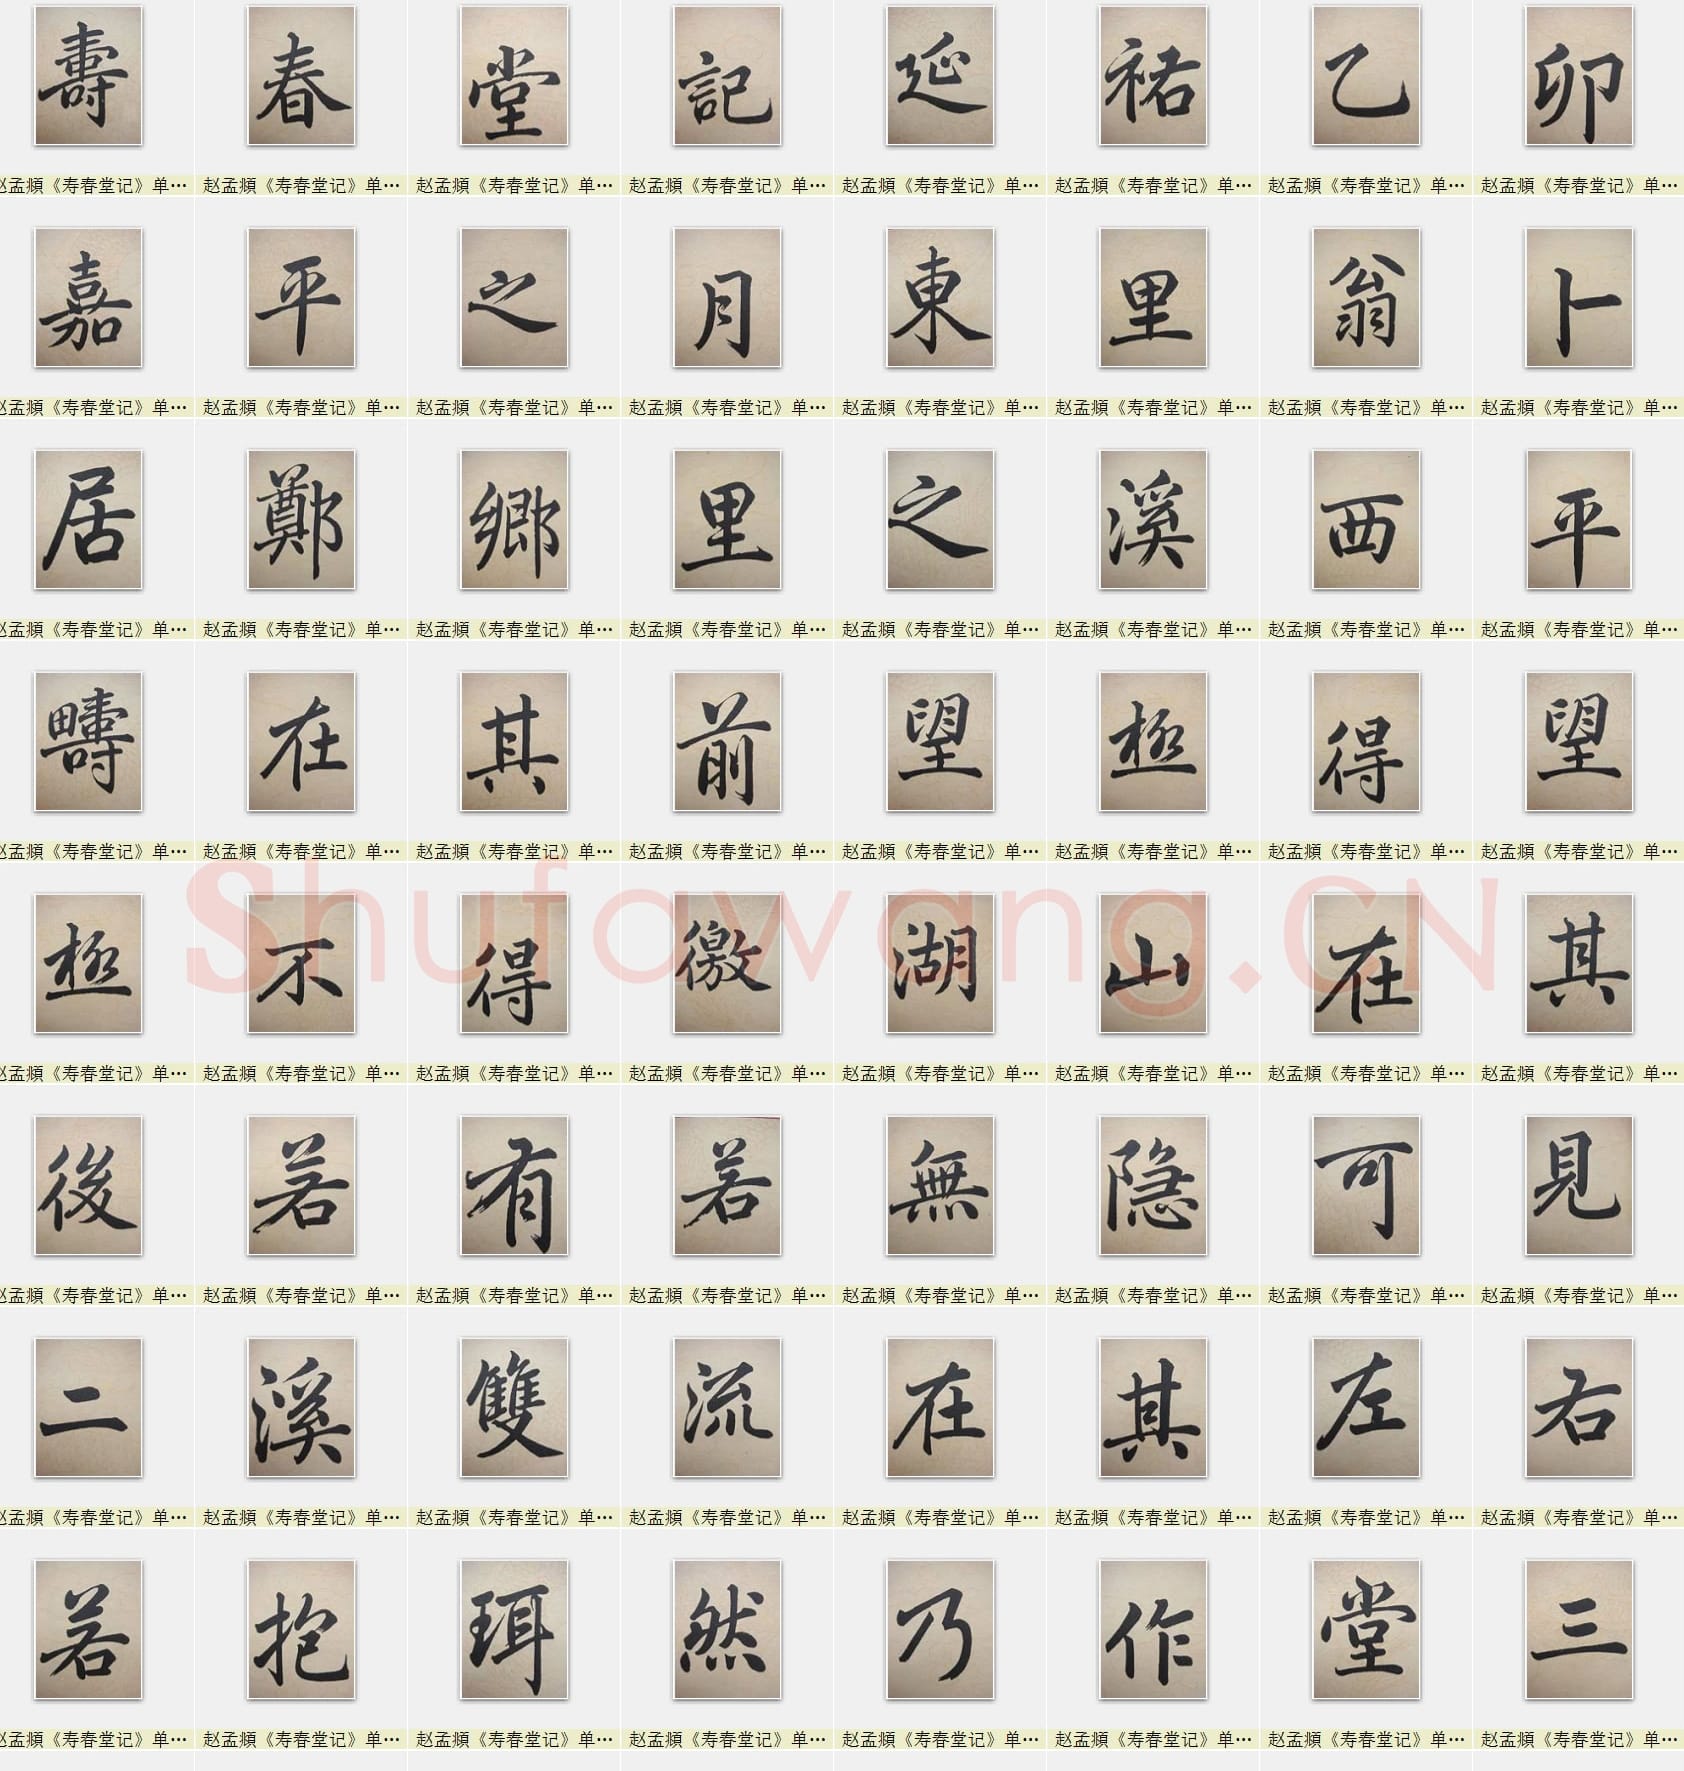 壽 春 堂 記 延 祐 乙 卯
赵孟頫《寿春堂记》单… 赵孟頫《寿春堂记》单… 赵孟頫《寿春堂记》单… 赵孟頫《寿春堂记》单… 赵孟頫《寿春堂记》单… 赵孟頫《寿春堂记》单… 赵孟頫《寿春堂记》单… 赵孟頫《寿春堂记》单…
嘉 平 之 月 東 里 翁 卜
赵孟頫《寿春堂记》单… 赵孟頫《寿春堂记》单… 赵孟頫《寿春堂记》单… 赵孟頫《寿春堂记》单… 赵孟頫《寿春堂记》单… 赵孟頫《寿春堂记》单… 赵孟頫《寿春堂记》单… 赵孟頫《寿春堂记》单…
居 鄭 鄉 里 之 溪 西 平
赵孟頫《寿春堂记》单… 赵孟頫《寿春堂记》单… 赵孟頫《寿春堂记》单… 赵孟頫《寿春堂记》单… 赵孟頫《寿春堂记》单… 赵孟頫《寿春堂记》单… 赵孟頫《寿春堂记》单… 赵孟頫《寿春堂记》单…
疇 在 其 前 望 極 得 望
赵孟頫《寿春堂记》单… 赵孟頫《寿春堂记》单… 赵孟頫《寿春堂记》单… 赵孟頫《寿春堂记》单… 赵孟頫《寿春堂记》单… 赵孟頫《寿春堂记》单… 赵孟頫《寿春堂记》单… 赵孟頫《寿春堂记》单…
Shufawang.CN
極 不 得 徼 湖 山 在 其
赵孟頫《寿春堂记》单… 赵孟頫《寿春堂记》单… 赵孟頫《寿春堂记》单… 赵孟頫《寿春堂记》单… 赵孟頫《寿春堂记》单… 赵孟頫《寿春堂记》单… 赵孟頫《寿春堂记》单… 赵孟頫《寿春堂记》单…
後 若 有 若 無 隐 可 見
赵孟頫《寿春堂记》单… 赵孟頫《寿春堂记》单… 赵孟頫《寿春堂记》单… 赵孟頫《寿春堂记》单… 赵孟頫《寿春堂记》单… 赵孟頫《寿春堂记》单… 赵孟頫《寿春堂记》单… 赵孟頫《寿春堂记》单…
二 溪 雙 流 在 其 左 右
赵孟頫《寿春堂记》单… 赵孟頫《寿春堂记》单… 赵孟頫《寿春堂记》单… 赵孟頫《寿春堂记》单… 赵孟頫《寿春堂记》单… 赵孟頫《寿春堂记》单… 赵孟頫《寿春堂记》单… 赵孟頫《寿春堂记》单…
若 抱 珥 然 乃 作 堂 三
赵孟頫《寿春堂记》单… 赵孟頫《寿春堂记》单… 赵孟頫《寿春堂记》单… 赵孟頫《寿春堂记》单… 赵孟頫《寿春堂记》单… 赵孟頫《寿春堂记》单… 赵孟頫《寿春堂记》单… 赵孟頫《寿春堂记》单…